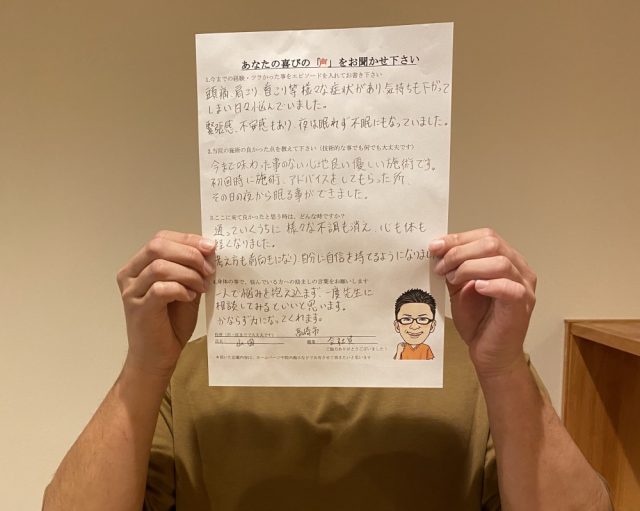 あなたの喜びの「声」をお聞かせ下さい
1.今までの経験・ツラかった事をエピソードを入れてお書き下さい
頭痛、肩こり、首こり等様々な症状があり気持ちも下がって
しまい日々悩んでいました。
緊張感、不安感もあり、夜は眠れず不眠にもなっていました。
2.当院の施術の良かった点を教えて下さい（技術的な事でも何でも大丈夫です）
今まで味わった事のない心地良い優しい施術です。
初回時に施術、アドバイスをしてもらった所、
その日の夜から眠る事ができました。
3.ここに来て良かったと思う時は、どんな時ですか？
通っていくうちに様々な不調も消え、心も体も
軽くなりました。
考え方も前向きになり、自分に自信を持てるようになりました
4.身体の事で、悩んでいる方への励ましの言葉をお願いします
一人で悩みを抱え込まず、一度先生に
相談してみるといいと思います。
かならず力になってくれます。
高崎市
氏名 山田 職業 会社員
ご協力ありがとうございました！